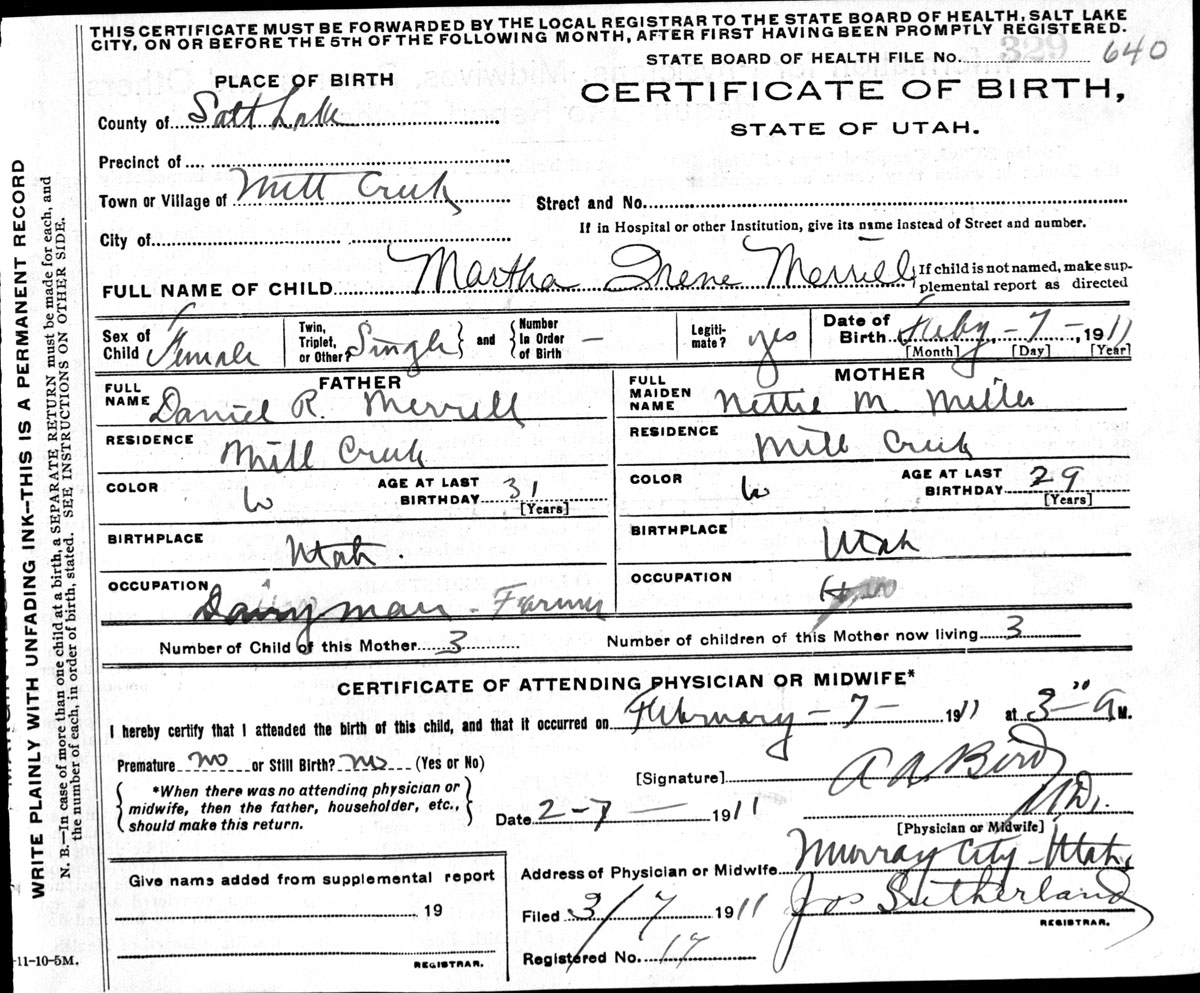 THIS CERTIFICATE MUST BE FORWARDED BY THE LOCAL REGISTRAR TO THE STATE BOARD OF HEALTH, SALT LAKE
CITY, ON OR BEFORE THE 5TH OF THE FOLLOWING MONTH, AFTER FIRST HAVING BEEN PROMPTLY REGISTERED.
STATE BOARD OF HEALTH FILE No. 329 640
PLACE OF BIRTH
CERTIFICATE OF BIRTH,
STATE OF UTAH.
County of Salt Lake
Precinct of
Town or Village of Mill Creek
Street and No.
City of
If in Hospital or other Institution, give its name instead of Street and number.
FULL NAME OF CHILD Martha Irene Merrill
If child is not named, make sup-
plemental report as directed
Sex of Child Female
Twin, Triplet, or Other? Single and Number In Order of Birth –
Legiti-mate? yes
Date of Birth Feby – 7 – , 1911
[Month] [Day] [Year]
FATHER
FULL NAME Daniel R. Merrill
RESIDENCE Mill Creek
COLOR W AGE AT LAST BIRTHDAY 31 [Years]
BIRTHPLACE Utah.
OCCUPATION Dairyman - Farmer
MOTHER
FULL MAIDEN NAME Nettie M. Miller
RESIDENCE Mill Creek
COLOR W AGE AT LAST BIRTHDAY 29 [Years]
BIRTHPLACE Utah
OCCUPATION
Number of Child of this Mother 3 Number of children of this Mother now living 3
CERTIFICATE OF ATTENDING PHYSICIAN OR MIDWIFE*
I hereby certify that I attended the birth of this child, and that it occurred on February – 7 – 1911 at 3 – A M.
Premature no or Still Birth? no (Yes or No)
*When there was no attending physician or
midwife, then the father, householder, etc.,
should make this return.
[Signature] Bird
M.D.
Date 2–7 — 1911
[Physician or Midwife]
Address of Physician or Midwife Murray City – Utah.
Give name added from supplemental report
19
REGISTRAR.
Filed 3/7 1911 Jos Sutherland
REGISTRAR.
Registered No. 17
-11-10-5M.
WRITE PLAINLY WITH UNFADING INK--THIS IS A PERMANENT RECORD
N. B.—In case of more than one child at a birth, a SEPARATE RETURN must be made for each, and
the number of each, in order of birth, stated. SEE INSTRUCTIONS ON OTHER SIDE.